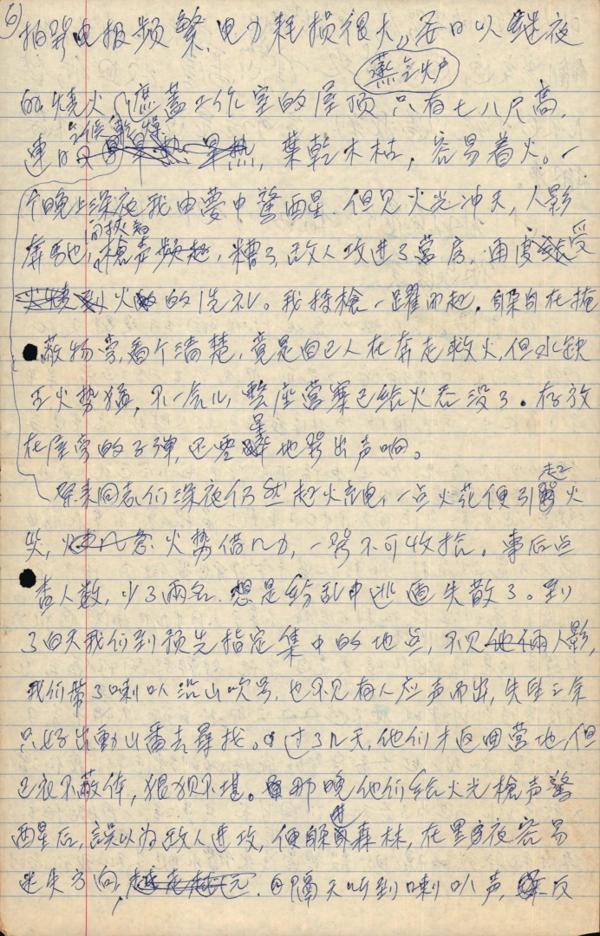 6)
拍發电报频繁,电力耗损很大,每日以继夜
蒸气炉
的燒火,遮蓋工作室的屋顶只有七八尺高,
連日乾燥,葉乾木枯,容易着火。一
个晚上深夜我由夢中驚醒,但见火光冲天,人影
奔馳,槍声频起,糟了,敌人攻进了营房,再度受
火的洗礼。我持槍一躍而起,躲身在掩
蔽物旁,看个清楚,竟是自己人在奔走救火,但水缺
火势猛,不一会儿,整座营寨已给火吞没了。存放
在屋旁的子弹,还零星地發出声响。
原来同志们深夜仍然起火充电,一点火花便引起火
災,火势借风力,一發不可收拾。事后点
查人数,少了兩名,想是纷乱中逃遁失散了。到
了白天我们到预先指定集中的地点,不见人影,
我们带了喇叭沿山吹号,也不见有人应声而出,失望之余
只好出動山番去尋找。过了几天,他们才返回营地,但
已衣不蔽体,狼狈不堪。那晚他们给火光槍声驚
醒后,誤以为敌人进攻,便躲进森林,在黑夜容易
迷失方向,隔天听到喇叭声,反